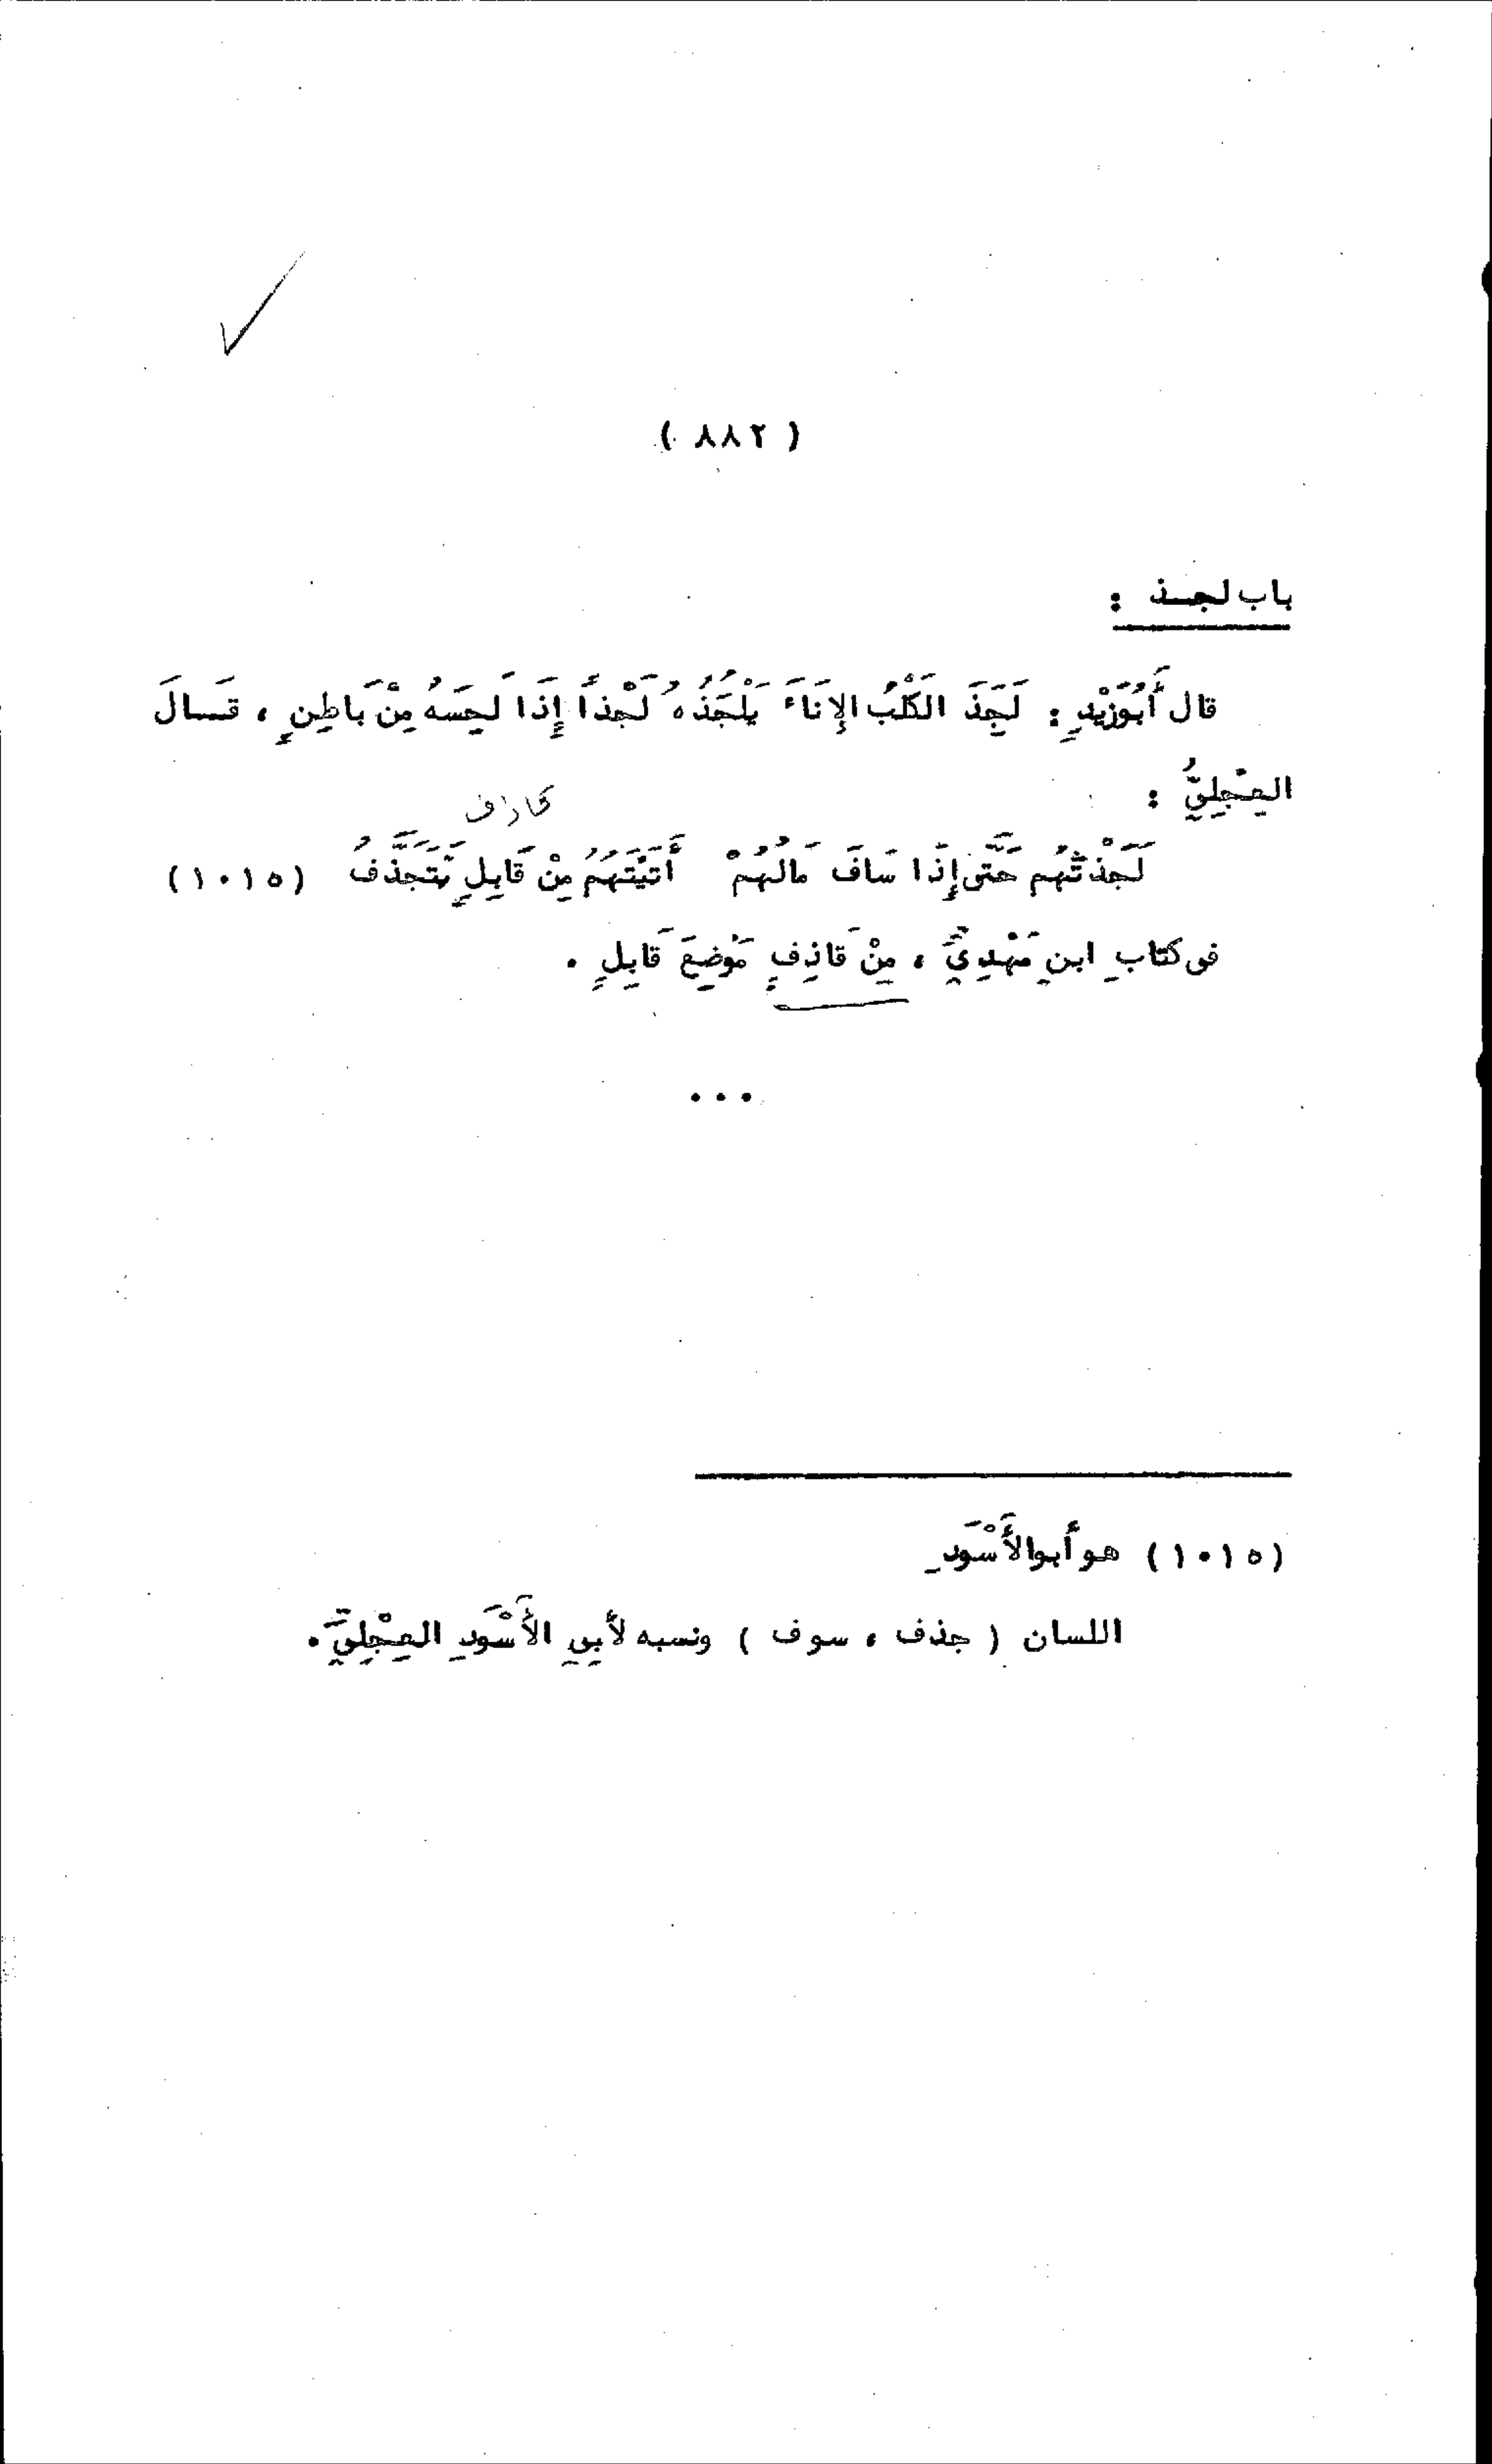 ( ٨٨٢ )
باب لجـذ :
قال أَبُوزَيْدٍ : لَجَذَ الَكَلْبُ الإِنَاءَ يَلْجَذُهُ لَجْذاً إِذَا لَحِسَهُ مِنْ بَاطِنٍ ، قـالَ
العِجْلِيُّ :
لَجَذْتُهُم حَتَّى إِذَا سَافَ مَالُهُمْ أَتَيْتَهُمُ مِنْ قَابِلٍ تَتَجَذَّفُ (١٠١٥)
فى كتابِ ابنِ مَهْدِيٍّ ، مِنْ قَاذِفٍ مَوْضِعَ قَابِلٍ .
...
(١٠١٥) هو أبوالأَسْوَدِ
اللسان ( جذف ، سوف ) ونسبه لأَبِى الأَسْوَدِ العِجْلِيِّ.